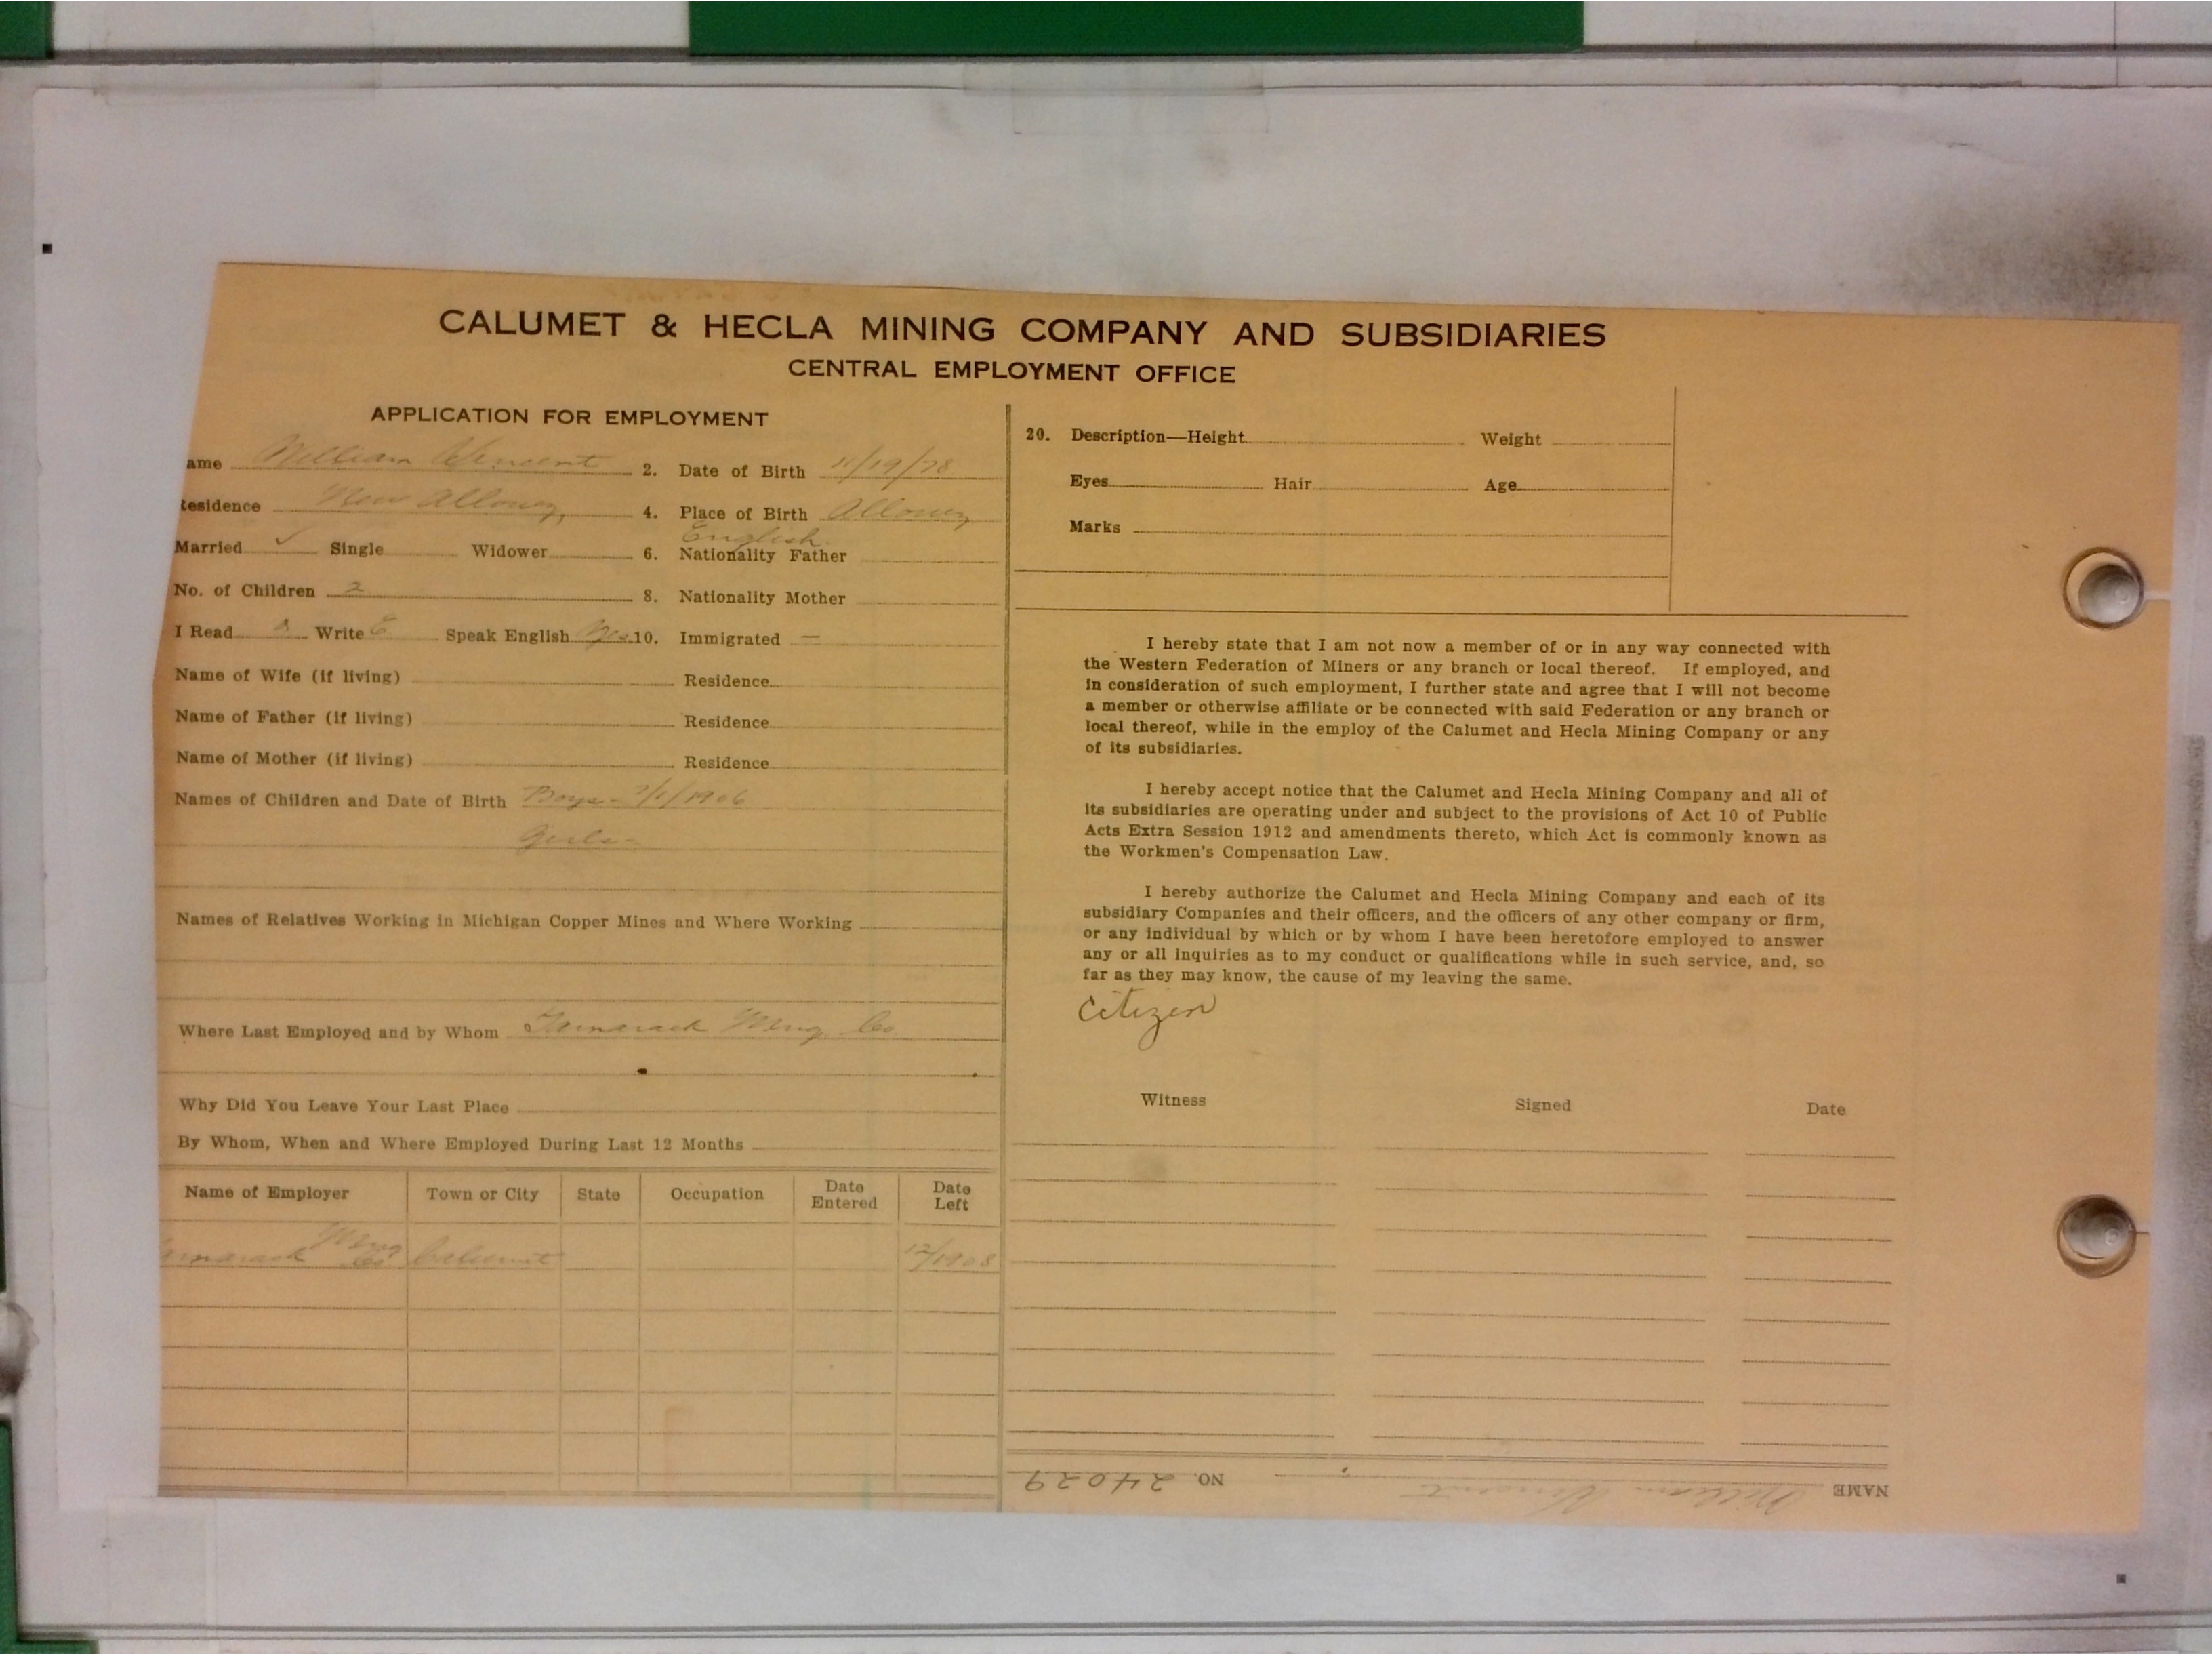 CALUMET & HECLA MINING COMPANY AND SUBSIDIARIES
CENTRAL EMPLOYMENT OFFICE
APPLICATION FOR EMPLOYMENT
ame William Vincent 2. Date of Birth 11/19/78
Residence New Allouez, 4. Place of Birth Allouez
English
Married ✓ Single Widower 6. Nationality Father
No. of Children 2 8. Nationality Mother
I Read Write E Speak English Yes 10. Immigrated —
Name of Wife (if living) Residence
Name of Father (if living) Residence
Name of Mother (if living) Residence
Names of Children and Date of Birth Boys - /1906
Girls -
Names of Relatives Working in Michigan Copper Mines and Where Working
Where Last Employed and by Whom Tamarack Mng Co
Why Did You Leave Your Last Place
By Whom, When and Where Employed During Last 12 Months
Name of Employer Town or City State Occupation Date Entered Date Left
amarack Mng Co Calumet 12/1908
20. Description—Height Weight
Eyes Hair Age
Marks
I hereby state that I am not now a member of or in any way connected with
the Western Federation of Miners or any branch or local thereof. If employed, and
in consideration of such employment, I further state and agree that I will not become
a member or otherwise affiliate or be connected with said Federation or any branch or
local thereof, while in the employ of the Calumet and Hecla Mining Company or any
of its subsidiaries.
I hereby accept notice that the Calumet and Hecla Mining Company and all of
its subsidiaries are operating under and subject to the provisions of Act 10 of Public
Acts Extra Session 1912 and amendments thereto, which Act is commonly known as
the Workmen's Compensation Law.
I hereby authorize the Calumet and Hecla Mining Company and each of its
subsidiary Companies and their officers, and the officers of any other company or firm,
or any individual by which or by whom I have been heretofore employed to answer
any or all inquiries as to my conduct or qualifications while in such service, and, so
far as they may know, the cause of my leaving the same.
Citizen
Witness Signed Date
NAME William Vincent NO. 24029